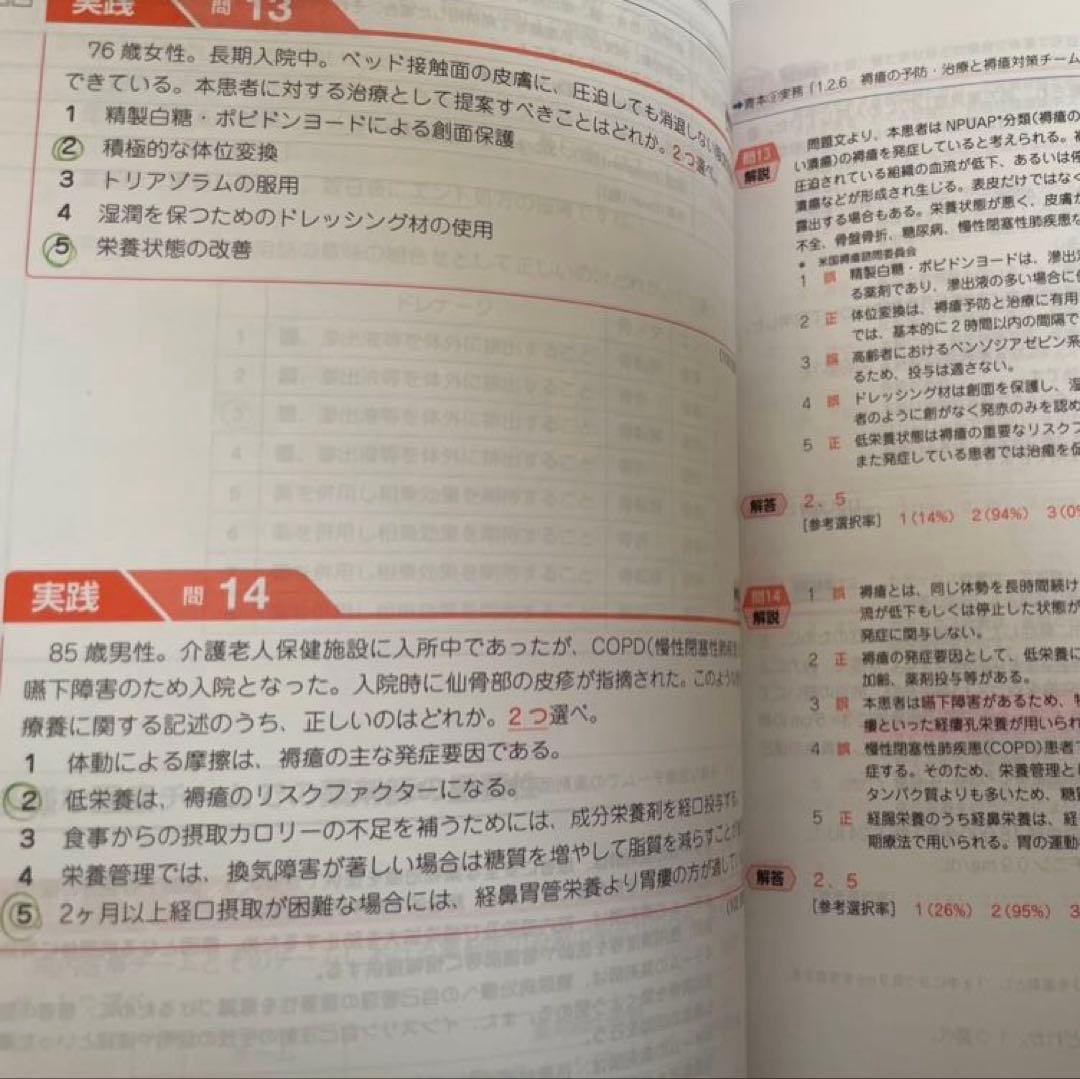 実践 問 13
76歳女性。長期入院中。ベッド接触面の皮膚に、圧迫しても消退しない
できている。本患者に対する治療として提案すべきことはどれか。2つ選べ。
1 精製白糖・ポビドンヨードによる創面保護
2 積極的な体位変換
3 トリアゾラムの服用
4 湿潤を保つためのドレッシング材の使用
5 栄養状態の改善
実践 問 14
85歳男性。介護老人保健施設に入所中であったが、COPD(慢性閉塞性肺疾患
嚥下障害のため入院となった。入院時に仙骨部の皮疹が指摘された。このような
療養に関する記述のうち、正しいのはどれか。2つ選べ。
1 体動による摩擦は、褥瘡の主な発症要因である。
2 低栄養は、褥瘡のリスクファクターになる。
3 食事からの摂取カロリーの不足を補うためには、成分栄養剤を経口投与する
4 栄養管理では、換気障害が著しい場合は糖質を増やして脂質を減らすことが
5 2ヶ月以上経口摂取が困難な場合には、経鼻胃管栄養より胃瘻の方が適して
➡青本⑨実務「1.2.6 褥瘡の予防・治療と褥瘡対策チーム
問13 解説
問題文より、本患者は NPUAP*分類(褥瘡の
い潰瘍)の褥瘡を発症していると考えられる。褥
圧迫されている組織の血流が低下、あるいは停
潰瘍などが形成され生じる。表皮だけではなく
露出する場合もある。栄養状態が悪く、皮膚が
不全、骨盤骨折、糖尿病、慢性閉塞性肺疾患な
* 米国褥瘡諮問委員会
1 誤 精製白糖・ポビドンヨードは、滲出液
る薬剤であり、滲出液の多い場合に使
2 正 体位変換は、褥瘡予防と治療に有用
では、基本的に2時間以内の間隔で
3 誤 高齢者におけるベンゾジアゼピン系
るため、投与は適さない。
4 誤 ドレッシング材は創面を保護し、湿
者のように創がなく発赤のみを認め
5 正 低栄養状態は褥瘡の重要なリスクフ
また発症している患者では治癒を促
解答 2、5
[参考選択率] 1(14%) 2(94%) 3(0%
問14 解説
1 誤 褥瘡とは、同じ体勢を長時間続け
流が低下もしくは停止した状態が
発症に関与しない。
2 正 褥瘡の発症要因として、低栄養に
加齢、薬剤投与等がある。
3 誤 本患者は嚥下障害があるため、
瘻といった経瘻孔栄養が用いられ
4 誤 慢性閉塞性肺疾患(COPD)患者
症する。そのため、栄養管理と
タンパク質よりも多いため、糖質
5 正 経腸栄養のうち経鼻栄養は、経
期療法で用いられる。胃の運動
解答 2、5
[参考選択率] 1(26%) 2(95%) 3